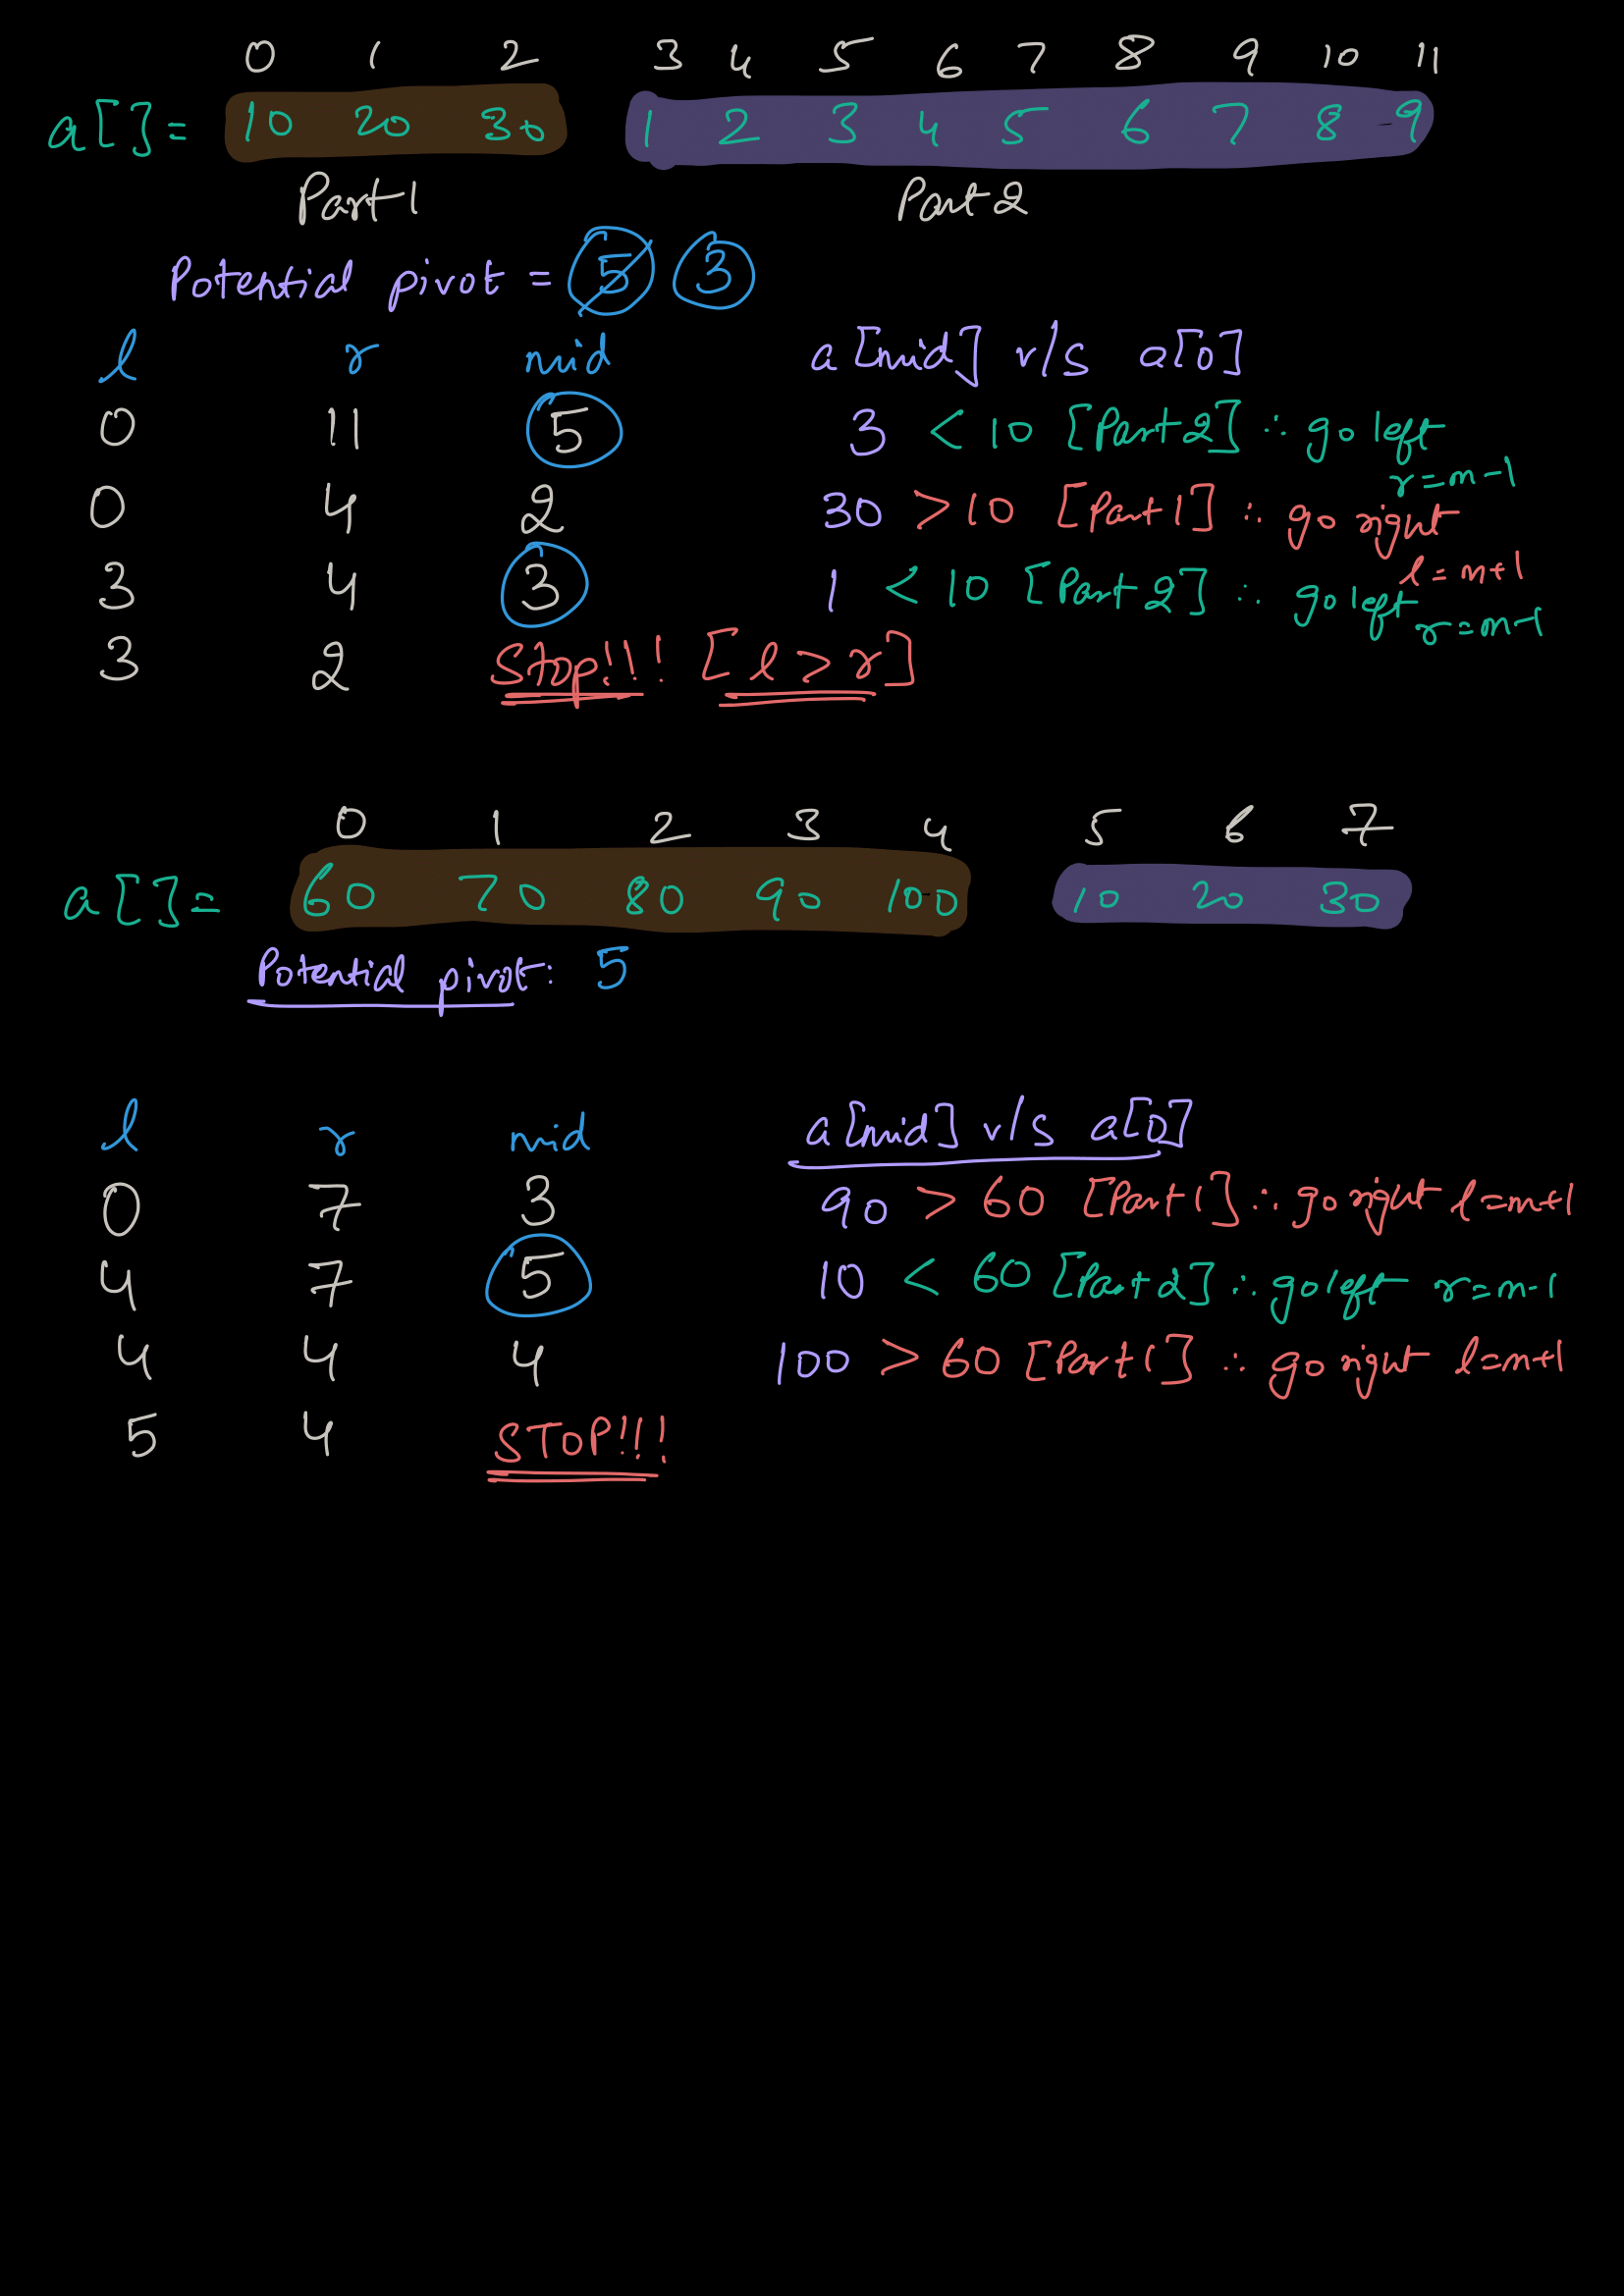 0 1 2 3 4 5 6 7 8 9 10 11
a[]= 10 20 30 1 2 3 4 5 6 7 8 9
Part 1 Part 2
Potential pivot = 5 3
l r mid a[mid] v/s a[0]
0 11 5 3 < 10 [Part 2] ∴ go left
r=m-1
0 4 2 30 > 10 [Part 1] ∴ go right
l=m+1
3 4 3 1 < 10 [Part 2] ∴ go left
r=m-1
3 2 Stop!!! [l > r]
0 1 2 3 4 5 6 7
a[]= 60 70 80 90 100 10 20 30
Potential pivot: 5
l r mid a[mid] v/s a[0]
0 7 3 90 > 60 [Part 1] ∴ go right l=m+1
4 7 5 10 < 60 [Part 2] ∴ go left r=m-1
4 4 4 100 > 60 [Part 1] ∴ go right l=m+1
5 4 STOP!!!